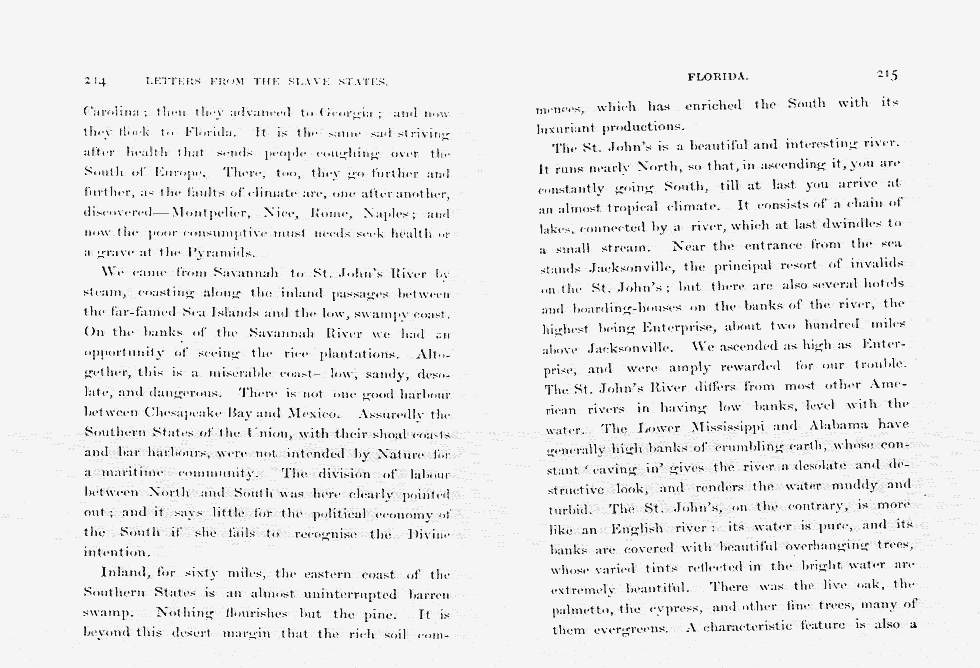 214 LETTERS FROM THE SLAVE STATES.
Carolina; then they advanced to Georgia; and now
they flock to Florida. It is the same sad striving
after health that sends people coughing over the
South of Europe. There, too, they go further and
further, as the faults of climate are, one after another,
discovered—Montpelier, Nice, Rome, Naples; and
now the poor consumptive must needs seek health or
a grave at the Pyramids.
We came from Savannah to St. John's River by
steam, coasting along the inland passages between
the far-famed Sea Islands and the low, swampy coast.
On the banks of the Savannah River we had an
opportunity of seeing the rice plantations. Alto-
gether, this is a miserable coast— low, sandy, deso-
late, and dangerous. There is not one good harbour
between Chesapeake Bay and Mexico. Assuredly the
Southern States of the Union, with their shoal coasts
and bar harbours, were not intended by Nature for
a maritime community. The division of labour
between North and South was here clearly pointed
out; and it says little for the political economy of
the South if she fails to recognise the Divine
intention.
Inland, for sixty miles, the eastern coast of the
Southern States is an almost uninterrupted barren
swamp. Nothing flourishes but the pine. It is
beyond this desert margin that the rich soil com-
FLORIDA. 215
mences, which has enriched the South with its
luxuriant productions.
The St. John's is a beautiful and interesting river.
It runs nearly North, so that, in ascending it, you are
constantly going South, till at last you arrive at
an almost tropical climate. It consists of a chain of
lakes, connected by a river, which at last dwindles to
a small stream. Near the entrance from the sea
stands Jacksonville, the principal resort of invalids
on the St. John's; but there are also several hotels
and boarding-houses on the banks of the river, the
highest being Enterprise, about two hundred miles
above Jacksonville. We ascended as high as Enter-
prise, and were amply rewarded for our trouble.
The St. John's River differs from most other Ame-
rican rivers in having low banks, level with the
water. The Lower Mississippi and Alabama have
generally high banks of crumbling earth, whose con-
stant 'caving in' gives the river a desolate and de-
structive look, and renders the water muddy and
turbid. The St. John's, on the contrary, is more
like an English river: its water is pure, and its
banks are covered with beautiful overhanging trees,
whose varied tints reflected in the bright water are
extremely beautiful. There was the live oak, the
palmetto, the cypress, and other fine trees, many of
them evergreens. A characteristic feature is also a